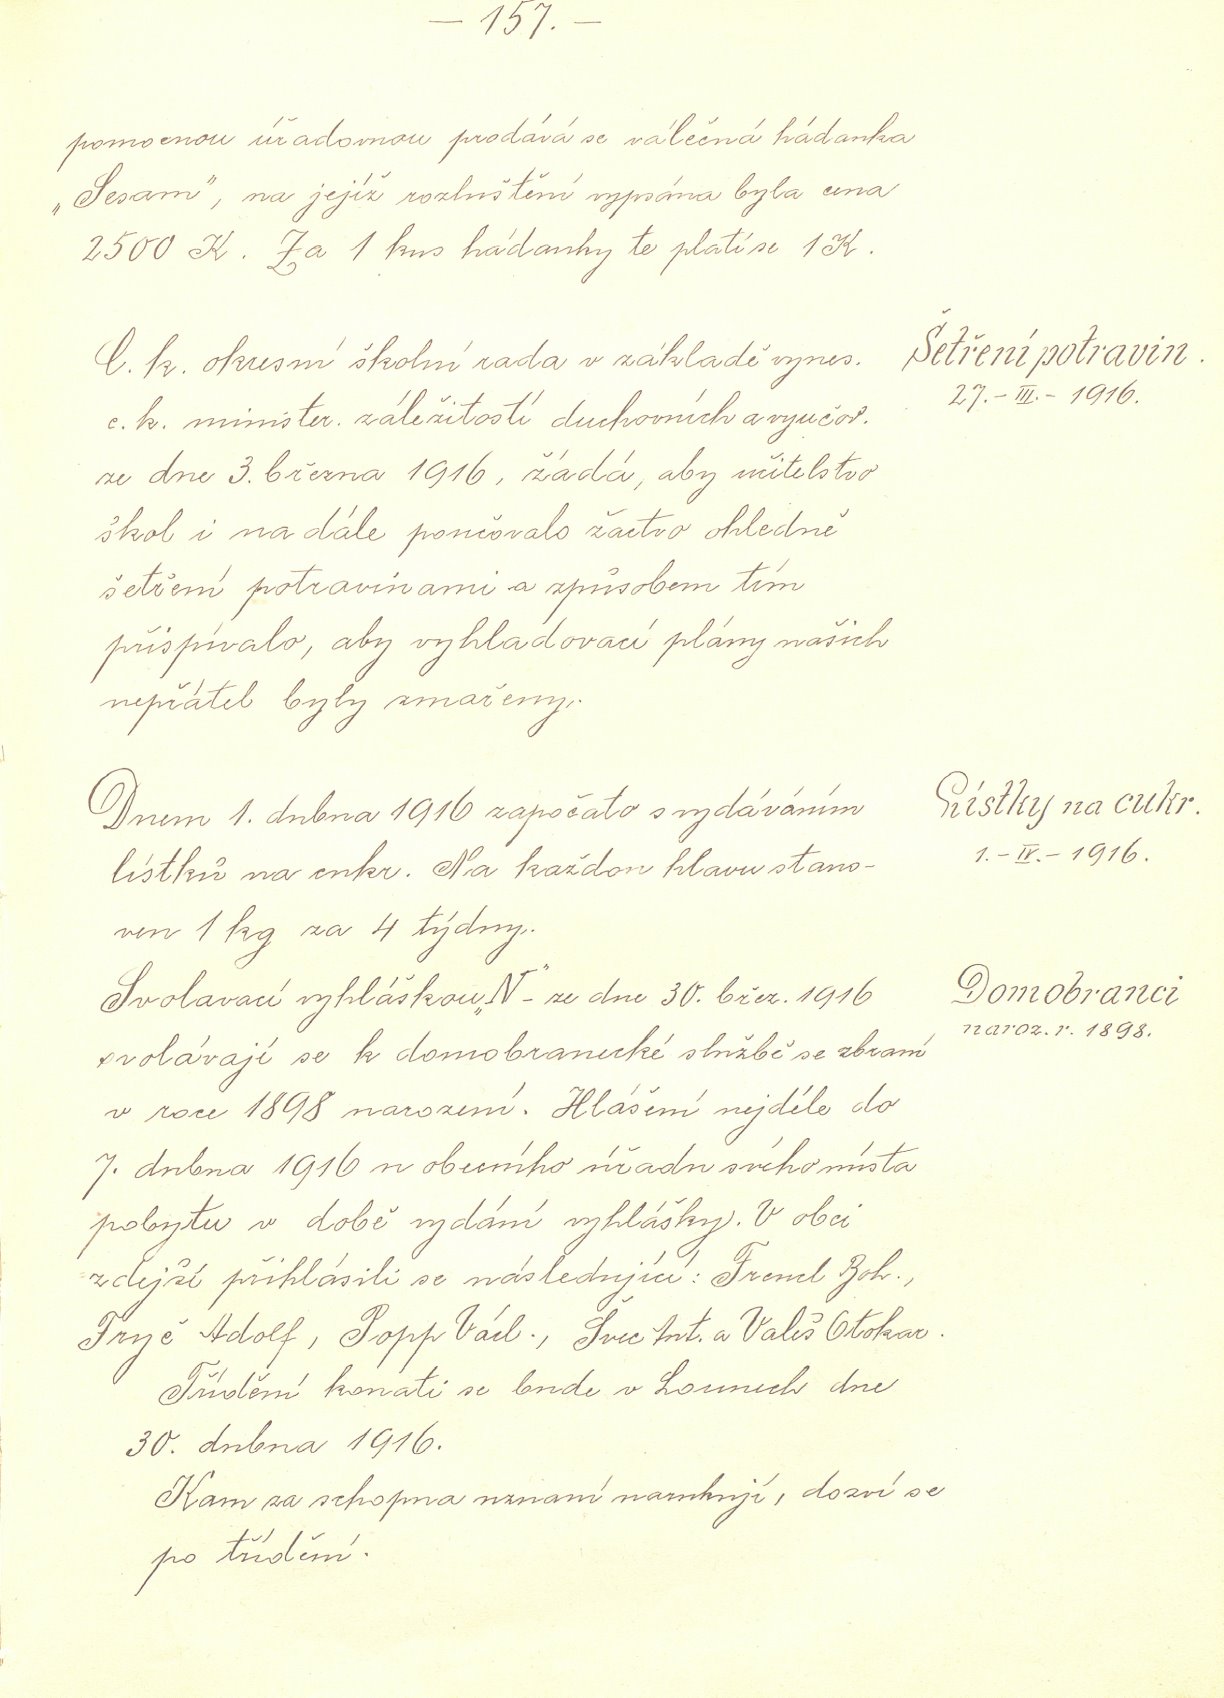 — 157. —
pomocnou úřadovnou prodává se válečná hádanka
„Sesam", na jejíž rozluštění vypsána byla cena
2500 K. Za 1 kus hádanky té platí se 1 K.
Šetření potravin.
27. - III. - 1916.
C. k. okresní školní rada v základě vynes.
c. k. minister. záležitostí duchovních a vyučov.
ze dne 3. března 1916, žádá, aby učitelstvo
škol i na dále poučovalo žactvo ohledně
šetření potravinami a způsobem tím
přispívalo, aby vyhladovací plány našich
nepřátel byly zmařeny.
Lístky na cukr.
1. - IV. - 1916.
Dnem 1. dubna 1916 započato s vydáváním
lístků na cukr. Na každou hlavu stano-
ven 1 kg za 4 týdny.
Domobranci
naroz. r. 1898.
Svolavací vyhláškou „N" - ze dne 30. břez. 1916
svolávají se k domobranecké službě se zbraní
v roce 1898 narození. Hlášení nejdéle do
7. dubna 1916 u obecního úřadu svého místa
pobytu v době vydání vyhlášky. V obci
zdejší přihlásili se následující: Frencl Boh.,
Fryč Adolf, Popp Václ., Švec Ant. a Valeš Otokar.
Třídění konati se bude v Lounech dne
30. dubna 1916.
Kam za schopna uznaní narukují, dozví se
po třídění.